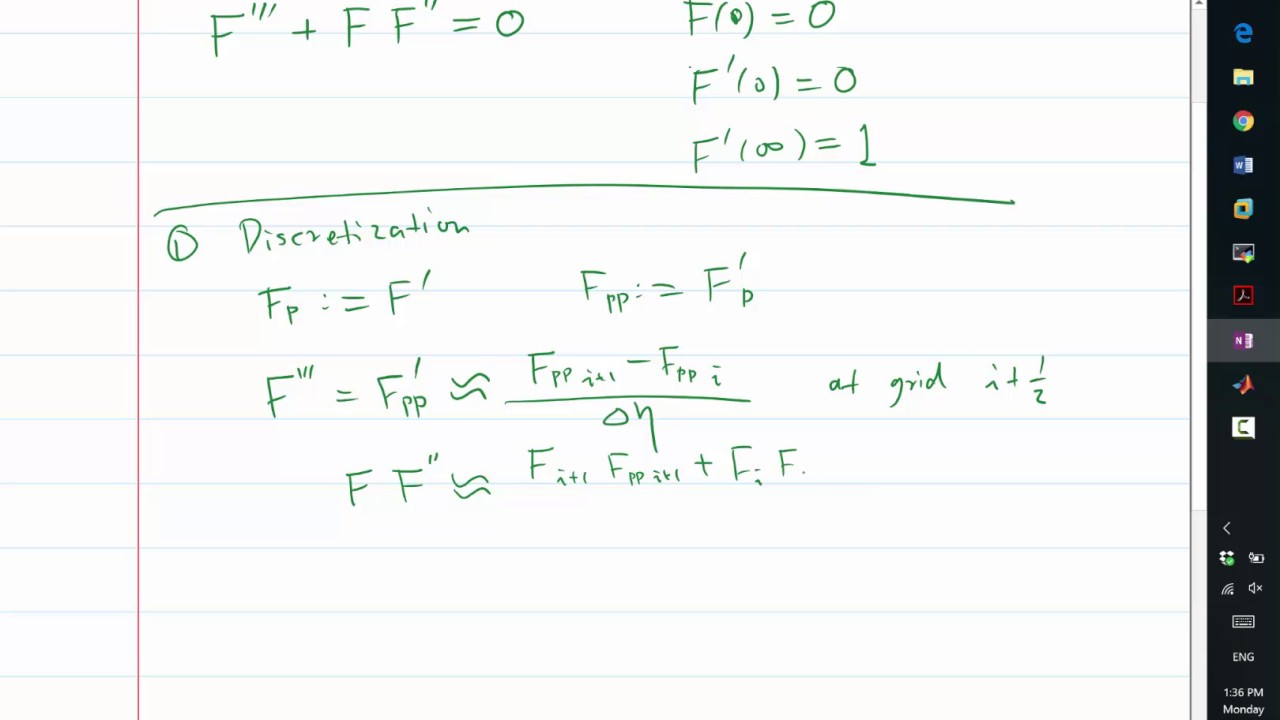 F''' + F F'' = 0
F(0) = 0
F'(0) = 0
F'(∞) = 1
① Discretization
F_p := F'    F_pp := F_p'
F''' = F_pp' ≈ (F_pp i+1 − F_pp i) / Δη    at grid i+1/2
F F'' ≈ F_i+1 F_pp i+1 + F_i F.
ENG
1:36 PM
Monday